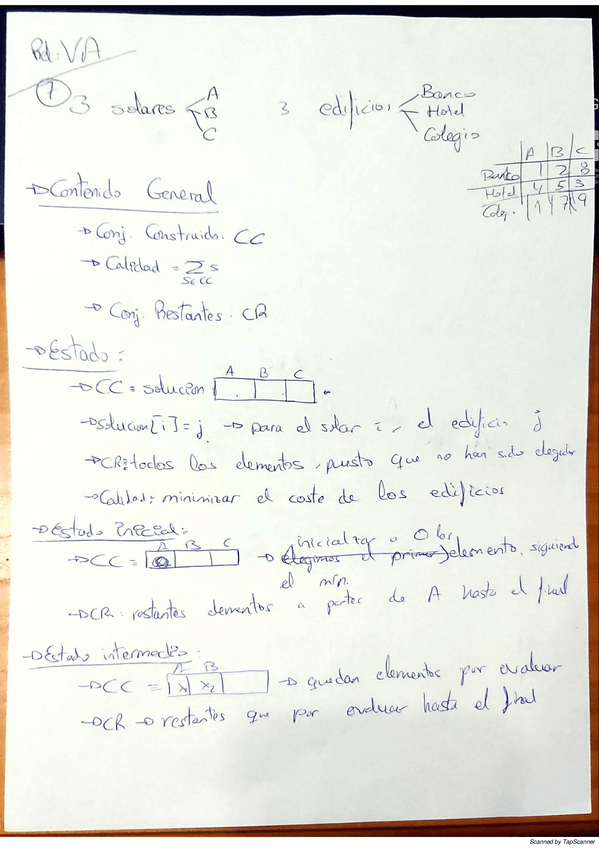 Rel: VA
① 3 solares A B C 3 edificios Banco Hotel Colegio
A B C
Banco 1 2 8
Hotel 4 5 3
Coleg. 1 7 9
→ Contenido General
→ Conj. Construido: CC
→ Calidad = Σ s
s∈CC
→ Conj. Restantes. CR
→ Estado:
A B C
→ CC = solucion
→ solucion[i] = j → para el solar i, el edificio j
→ CR: todos los elementos, puesto que no han sido elegidos
→ Calidad: minimizar el coste de los edificios
→ Estado Inicial:
A B C inicializar a 0 los
→ CC = 0 → elegimos el primer elemento, siguiendo
el min.
→ CR: restantes elementos a partir de A hasta el final
→ Estado intermedio:
A B
→ CC = x₁ x₂ → quedan elementos por evaluar
→ CR → restantes que por evaluar hasta el final
Scanned by TapScanner